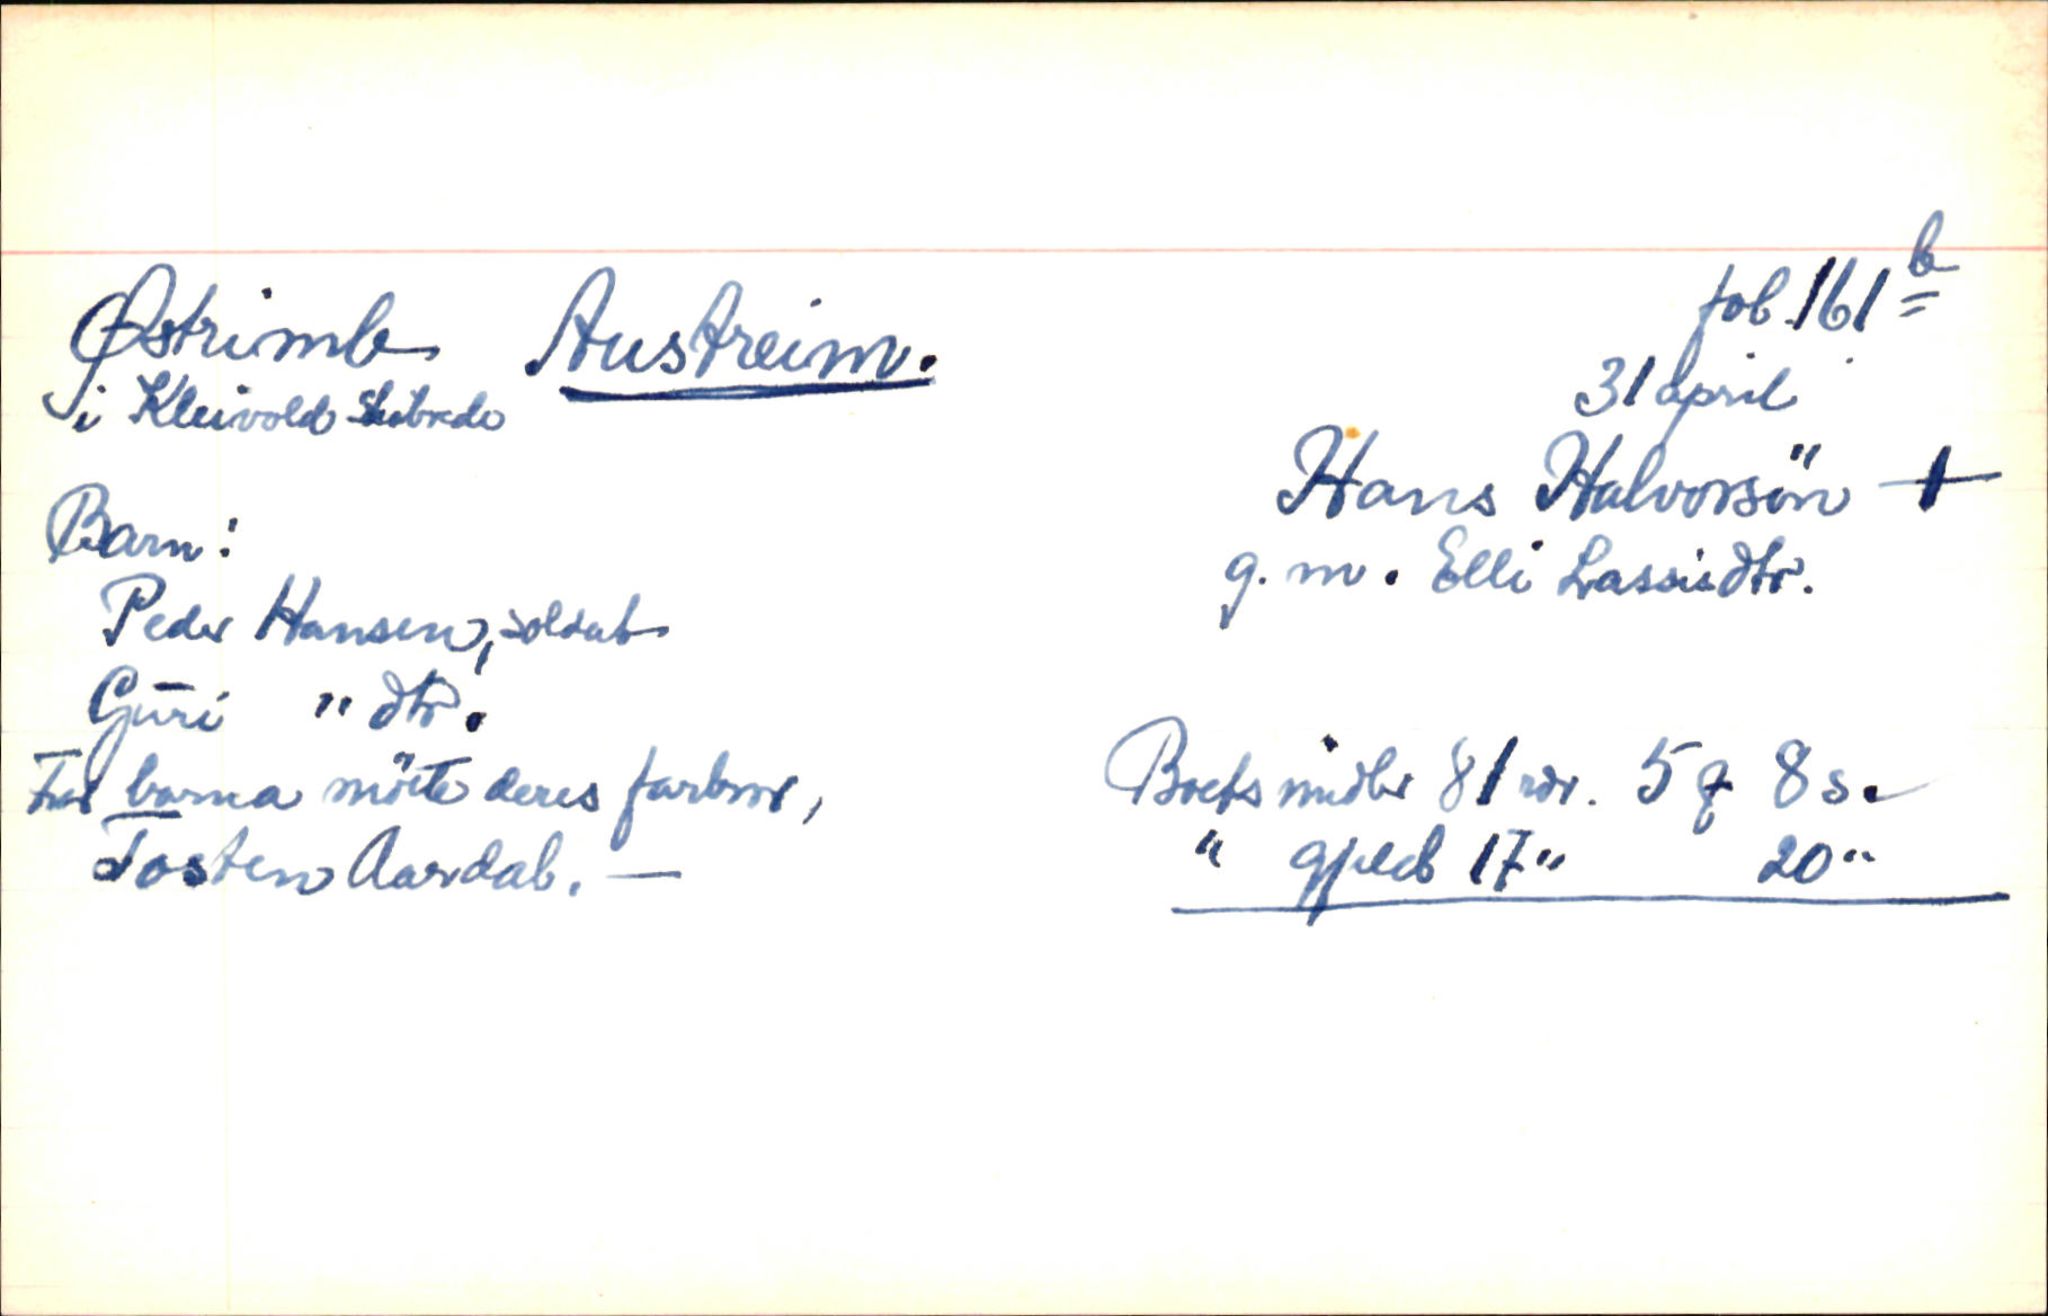 Østrimb Austreim.
fol. 161 b
i Kleivold Skibrede
31 april
Hans Halvorsön +
g. m. Elli Lassisdtr.
Barn:
Peder Hansen, soldat
Guri " dtr.
For barna möte deres farbror,
Tosten Aardal. —
Boets midler 81 rdr. 5 q 8 s.
" gjeld 17 " 20 "